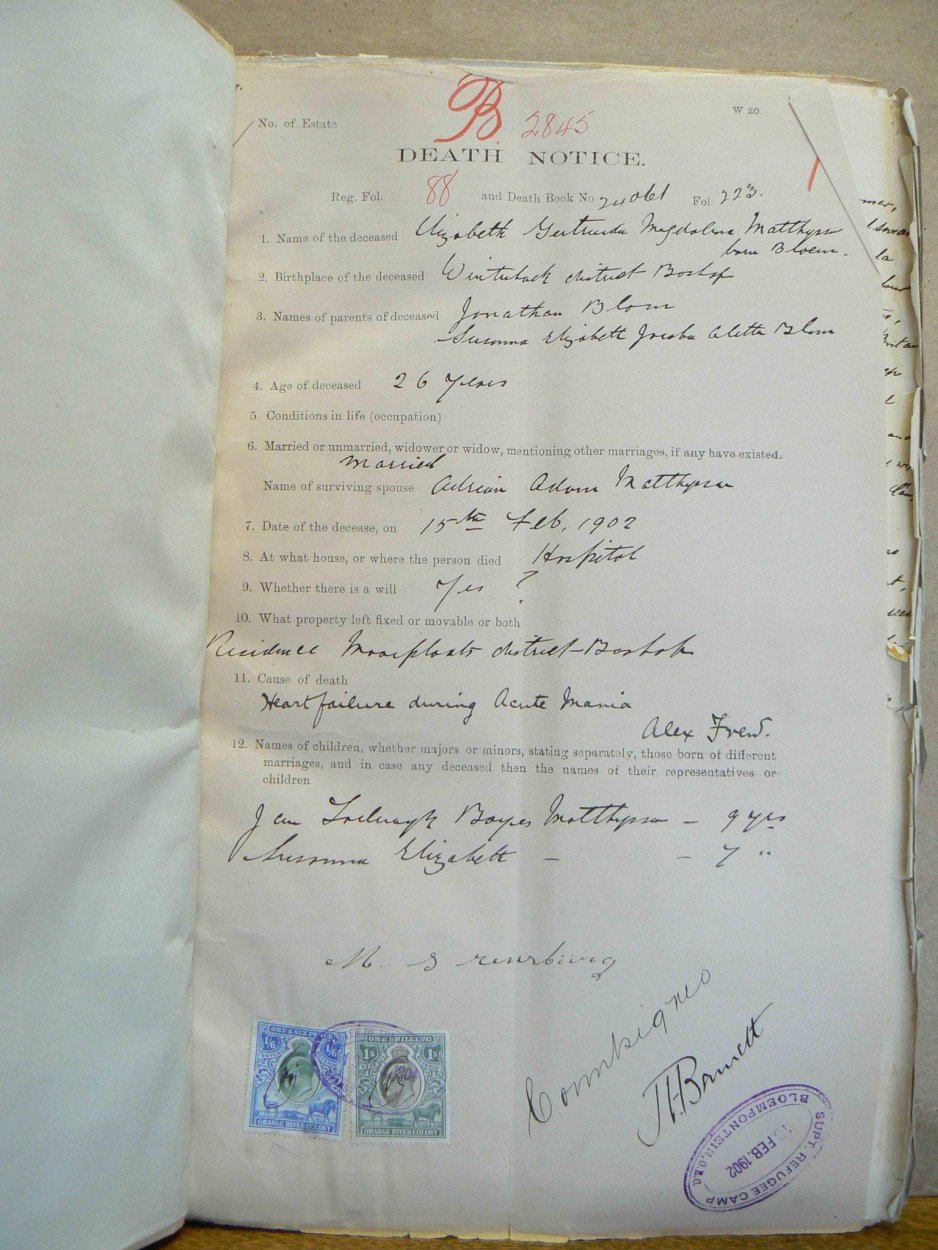 W 20
No. of Estate B 2845
DEATH NOTICE.
Reg. Fol. 88 and Death Book No Fol. 223.
1. Name of the deceased Elizabeth Gertruida Magdalena Matthysen
born Bloem.
2. Birthplace of the deceased district Boshof
3. Names of parents of deceased Jonathan Blom
Susanna Elizabeth Jacoba Aletta Blom
4. Age of deceased 26 years
5. Conditions in life (occupation)
6. Married or unmarried, widower or widow, mentioning other marriages, if any have existed.
Married
Name of surviving spouse Adrian Adam Matthysen
7. Date of the decease, on 15th Feb, 1902
8. At what house, or where the person died Hospital
9. Whether there is a will Yes ?
10. What property left fixed or movable or both
Residence district Boshof
11. Cause of death
Heart failure during Acute Mania
Alex
12. Names of children, whether majors or minors, stating separately, those born of different
marriages, and in case any deceased then the names of their representatives or
children
Jan Matthysen - 9 yrs
Susanna Elizabeth - - 7 "
Consigned
Barrett
ONE & SIX PE
1/6 1/6
ORANGE RIVER COLONY
ONE SHILLING
1s 1s
ORANGE RIVER COLONY
SUPT. REFUGEE CAMP
FEB. 1902
BLOEMFONTEIN. O.R.C.